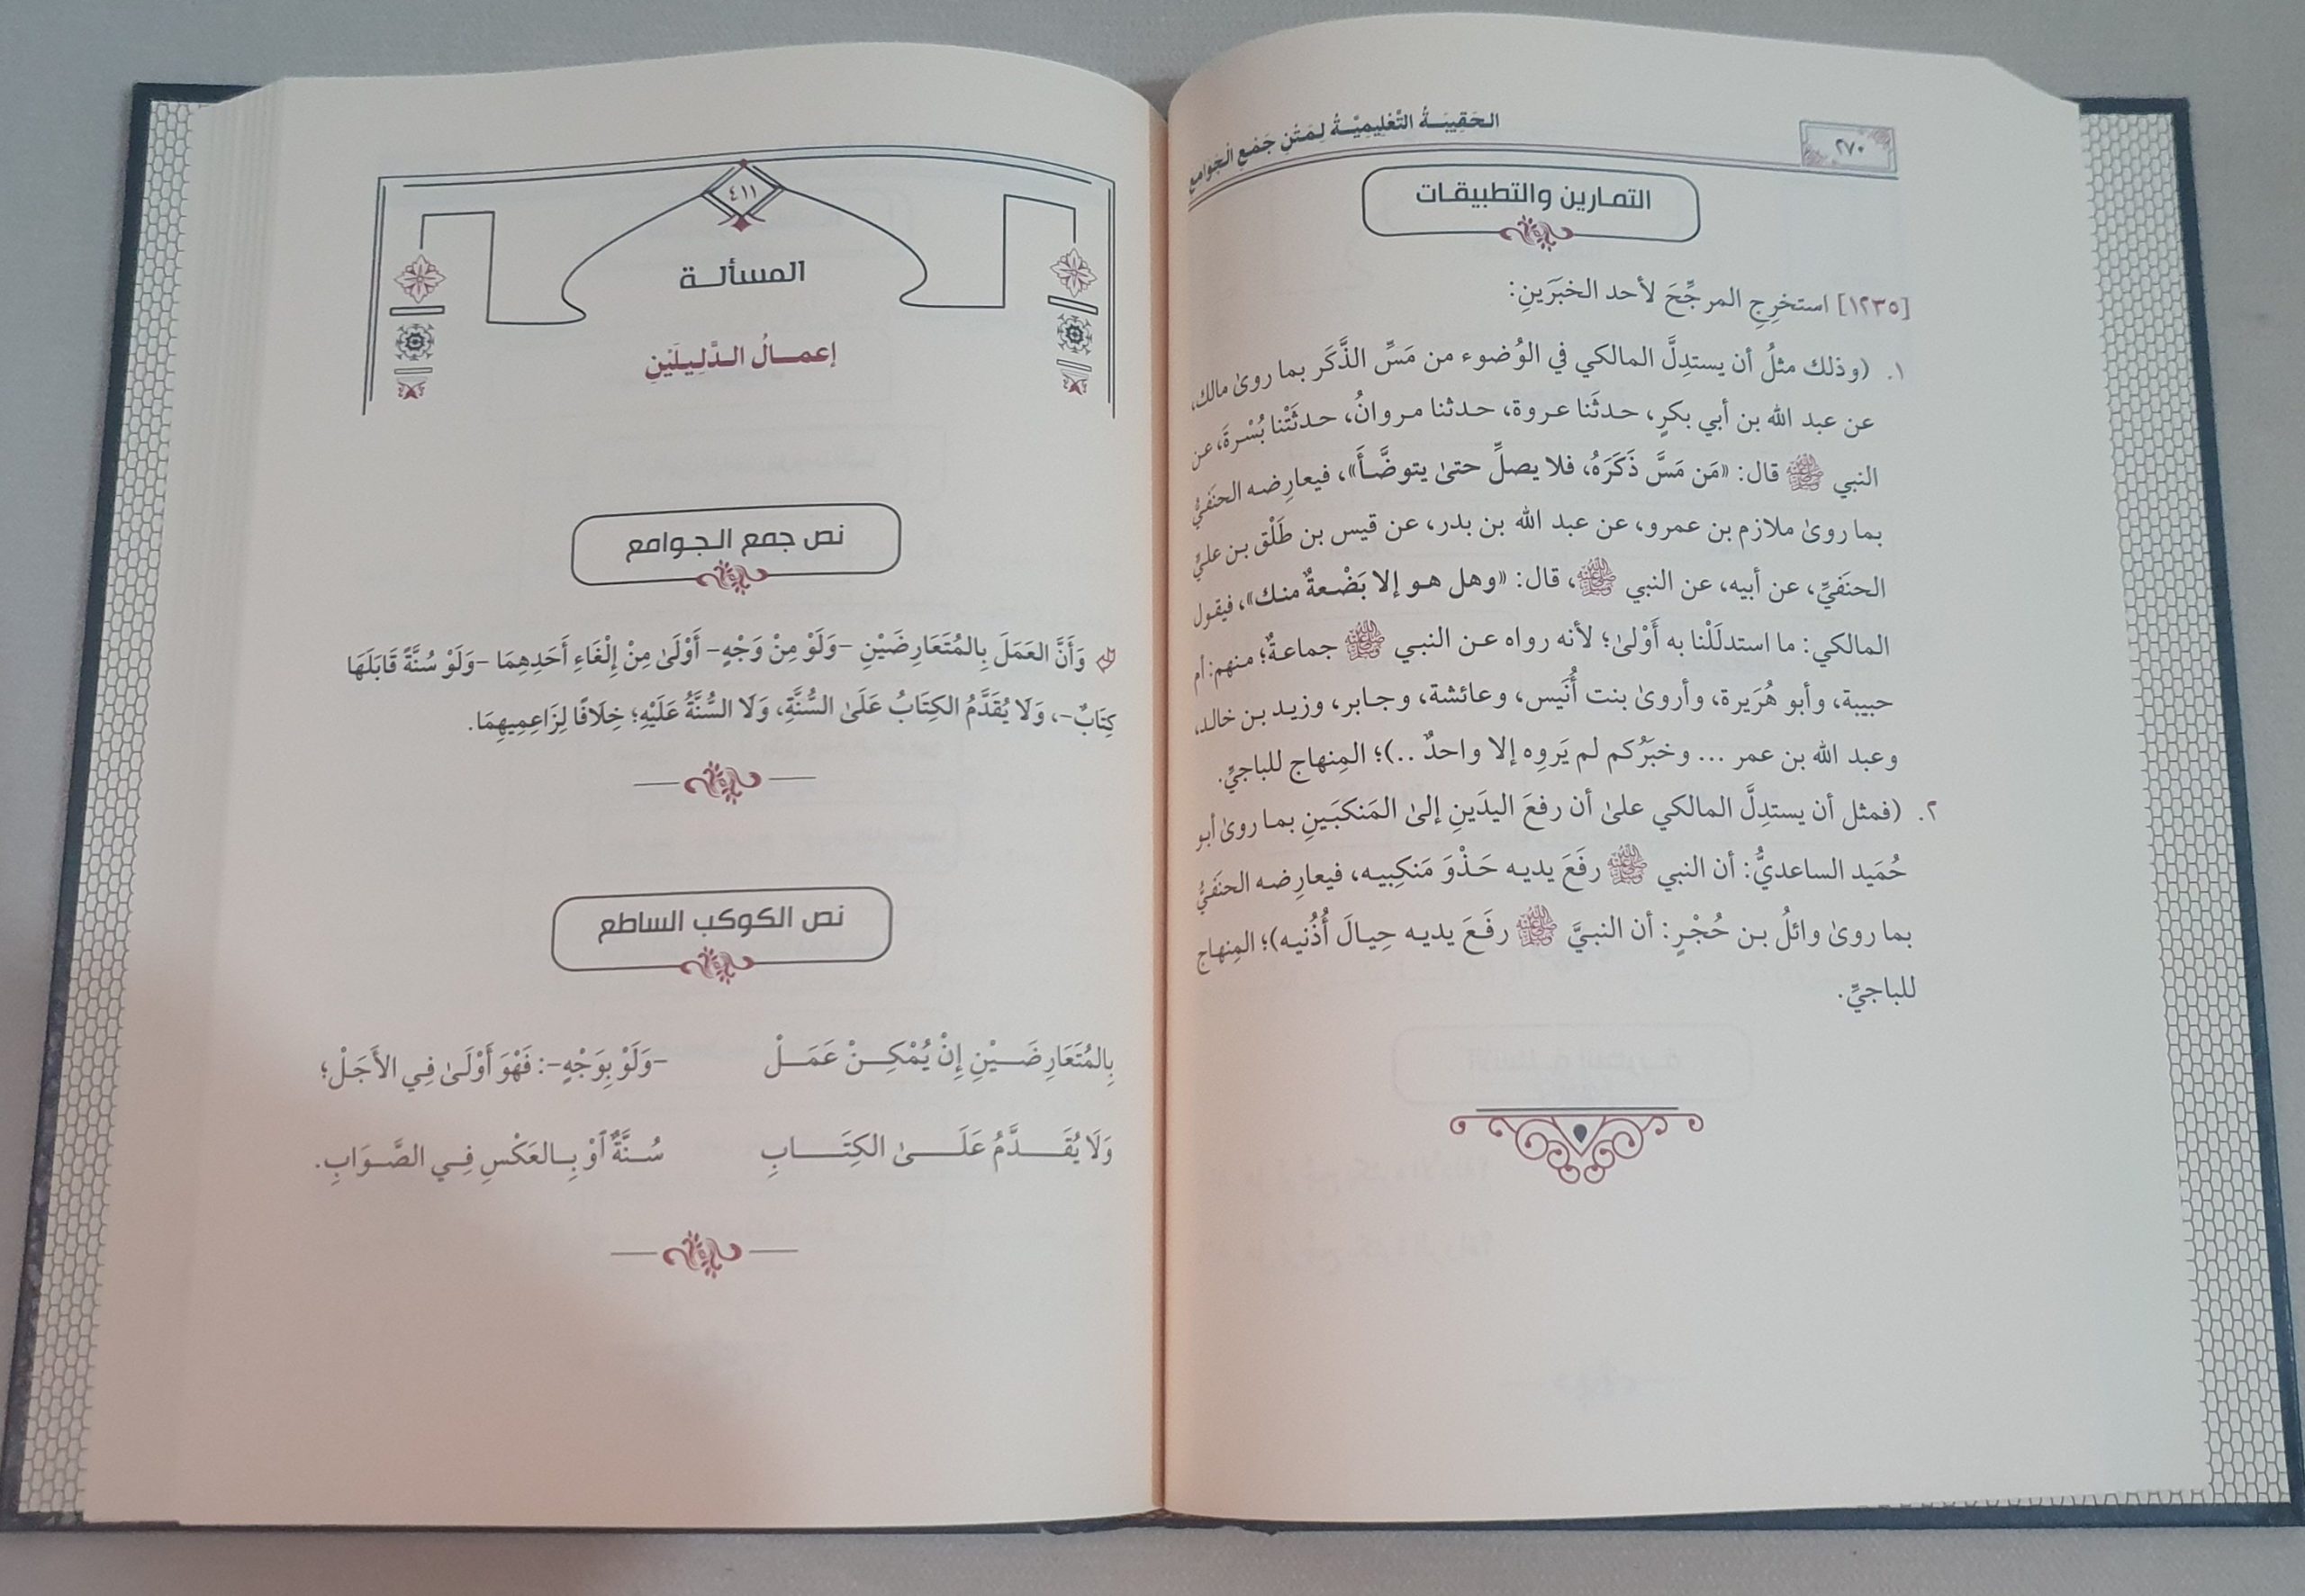 ٢٧٠
الحَقِيبَةُ التَّعْلِيمِيَّةُ لِمَتْنِ جَمْعِ الجَوَامِعِ
التمارين والتطبيقات
[١٢٣٥] استخرِجِ المرجِّحَ لأحد الخبَرَينِ:
١. (وذلك مثلُ أن يستدِلَّ المالكي في الوُضوء من مَسِّ الذَّكَر بما روىٰ مالك،
عن عبد الله بن أبي بكرٍ، حدثَنا عروة، حدثنا مروانُ، حدثَتْنا بُسْرةَ، عن
النبي ﷺ قال: «مَن مَسَّ ذَكَرَهُ، فلا يصلِّ حتىٰ يتوضَّأَ»، فيعارِضه الحنَفيُّ
بما روىٰ ملازم بن عمرو، عن عبد الله بن بدر، عن قيس بن طَلْق بن عليٍّ
الحنَفيِّ، عن أبيه، عن النبي ﷺ، قال: «وهل هو إلا بَضْعةٌ منك»، فيقول
المالكي: ما استدلَلْنا به أَوْلىٰ؛ لأنه رواه عن النبي ﷺ جماعةٌ؛ منهم: أم
حبيبة، وأبو هُرَيرة، وأروىٰ بنت أُنَيس، وعائشة، وجابر، وزيد بن خالد،
وعبد الله بن عمر ... وخبَرُكم لم يَروِه إلا واحدٌ ..)؛ المِنهاج للباجيِّ.
٢. (فمثل أن يستدِلَّ المالكي علىٰ أن رفعَ اليدَينِ إلىٰ المَنكبَينِ بما روىٰ أبو
حُمَيد الساعديُّ: أن النبي ﷺ رفَعَ يديه حَذْوَ مَنكِبيه، فيعارِضه الحنَفيُّ
بما روىٰ وائلُ بن حُجْرٍ: أن النبيَّ ﷺ رفَعَ يديه حِيالَ أُذُنيه)؛ المِنهاج
للباجيِّ.
٤١١
المسألة
إعمالُ الدَّلِيلَيْنِ
نص جمع الجوامع
وَأَنَّ العَمَلَ بِالمُتَعَارِضَيْنِ -وَلَوْ مِنْ وَجْهٍ- أَوْلَىٰ مِنْ إِلْغَاءِ أَحَدِهِمَا -وَلَوْ سُنَّةً قَابَلَهَا
كِتَابٌ-، وَلَا يُقَدَّمُ الكِتَابُ عَلَىٰ السُّنَّةِ، وَلَا السُّنَّةُ عَلَيْهِ؛ خِلَافًا لِزَاعِمِيهِمَا.
نص الكوكب الساطع
بِالمُتَعَارِضَيْنِ إِنْ يُمْكِنْ عَمَلْ -وَلَوْ بِوَجْهٍ-: فَهْوَ أَوْلَىٰ فِي الأَجَلْ؛
وَلَا يُقَدَّمُ عَلَىٰ الكِتَابِ سُنَّةٌ أوْ بِالعَكْسِ فِي الصَّوَابِ.